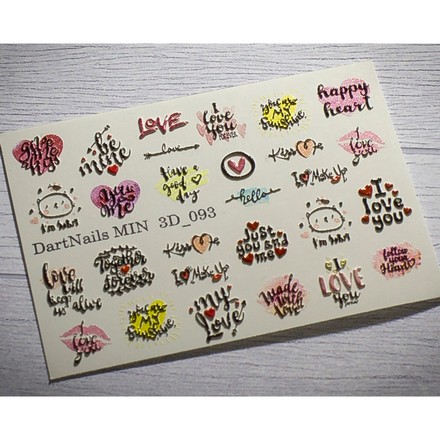 LOVE
I
love
you
FOREVER
you are
My
sunshine
happy
heart
be
mine
Love
Have a
good
day
Kiss me
I
love
you
hello
I ♥ Make Up
I
love
you
DartNails MIN 3D_093
Together
forever
Kiss me
I ♥ Make Up
Just
you and
me
love
keep
us alive
you are
My
sunshine
my
Love
made
with
love
I
LOVE
you
follow
your
Heart
I
love
you